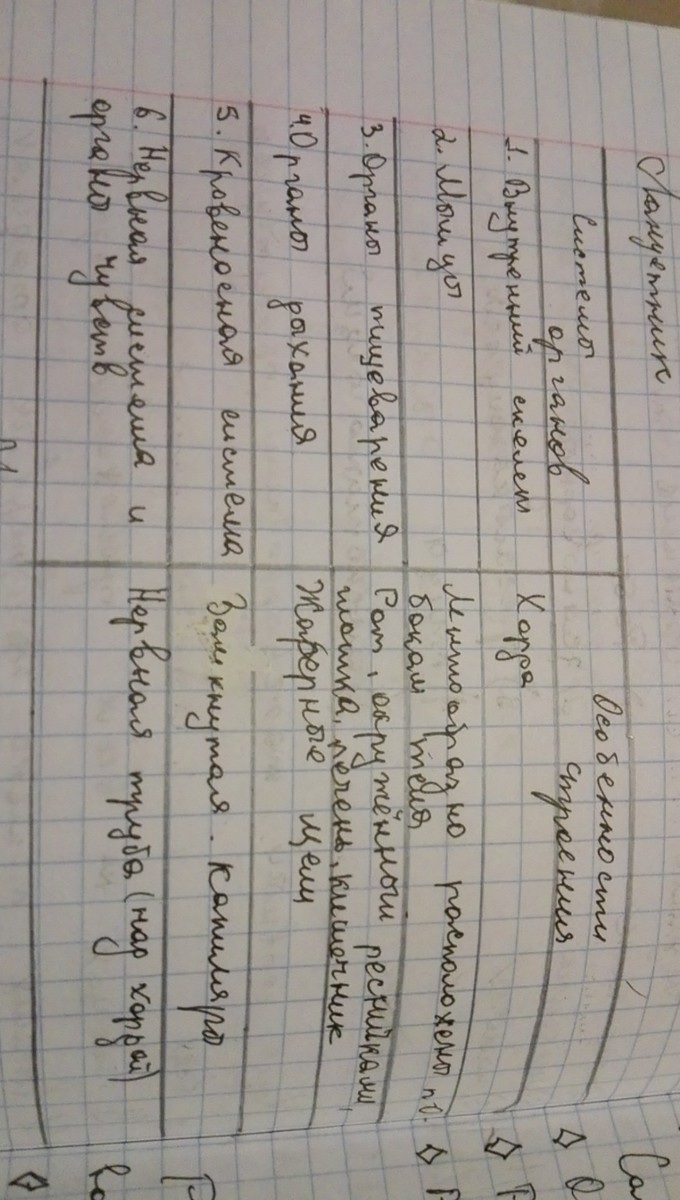 Ланцетник
Системы
органов
Особенности
строения
1. Внутренний скелет
Хорда
2. Мышцы
Лентообразно расположены по
бокам тела
3. Органы пищеварения
Рот, окружённый ресничками,
глотка, печень, кишечник
4. Органы дыхания
Жаберные щели
5. Кровеносная система
Замкнутая. Капиляры
6. Нервная система и
органы чувств
Нервная труба (над хордой)